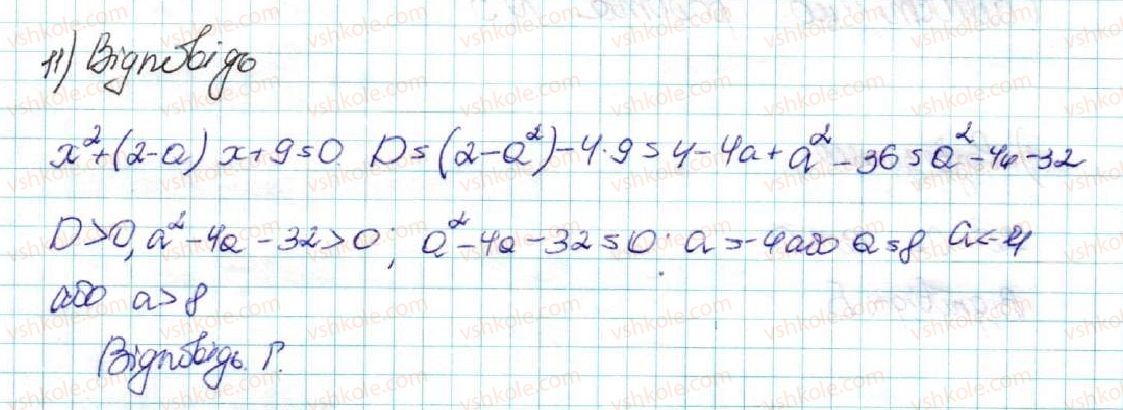 11) Відповідь
x²+(2-a)x+9=0 D=(2-a²)-4·9=4-4a+a²-36=a²-4a-32
D>0, a²-4a-32>0; a²-4a-32=0; a=-4 або a=8 a<-4
або a>8
Відповідь. Г.
vshkole.com